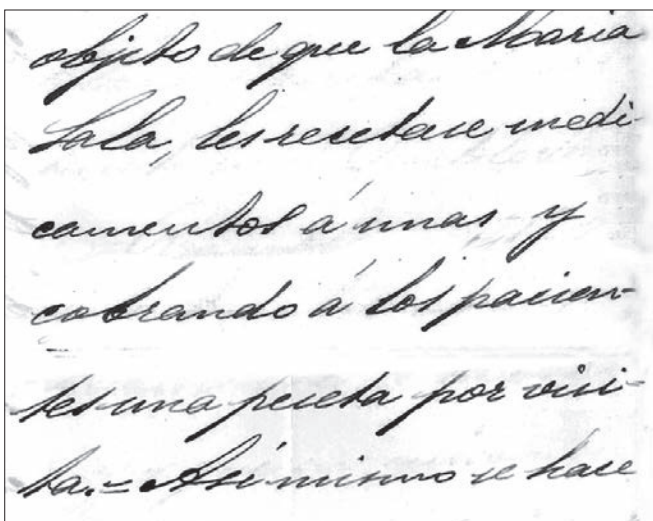 objeto de que la Maria
Sala, les recetase medi-
camentos á unas y
cobrando á los pacien-
tes una peseta por visi-
ta.= Asi mismo se hase